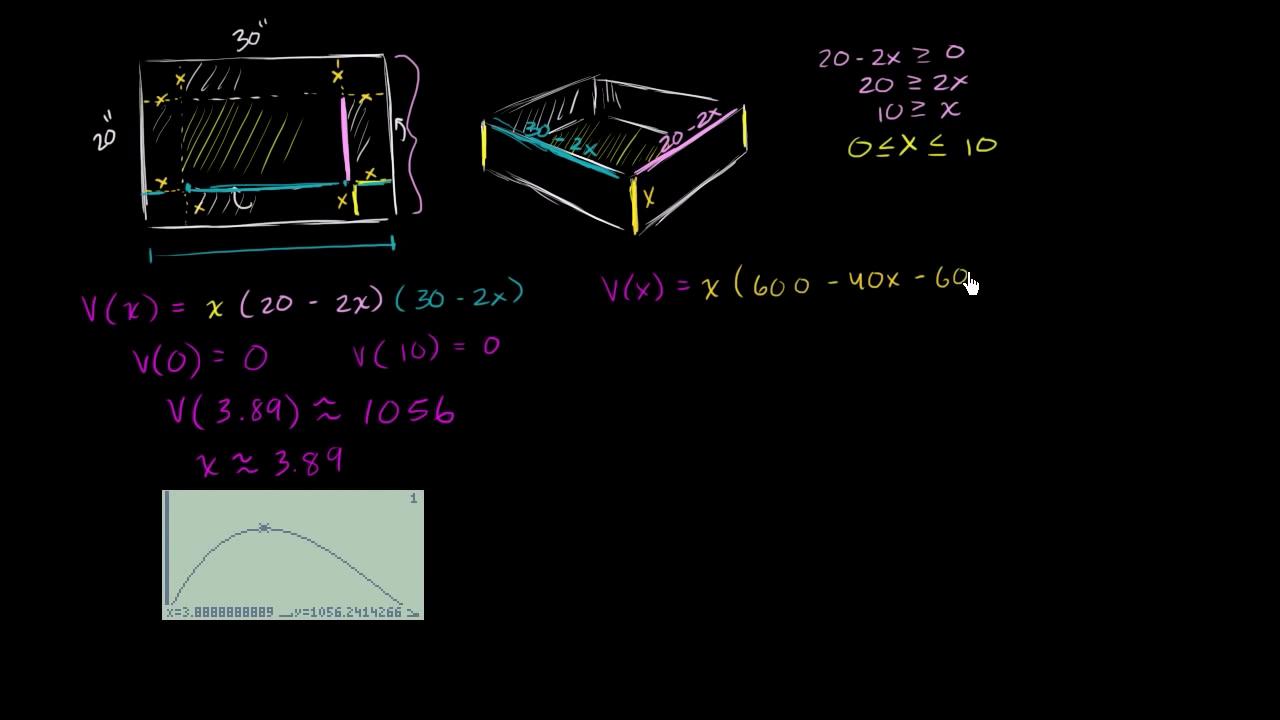 30"
20"
x x
x x
x x
x x
30 - 2x 20 - 2x
x
20 - 2x ≥ 0
20 ≥ 2x
10 ≥ x
0 ≤ x ≤ 10
V(x) = x (20 - 2x) (30 - 2x)
V(x) = x (600 - 40x - 60
V(0) = 0 V(10) = 0
V(3.89) ≈ 1056
x ≈ 3.89
1
x=3.8888888889 y=1056.2414266